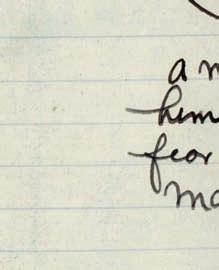 a m
him
fear
ma